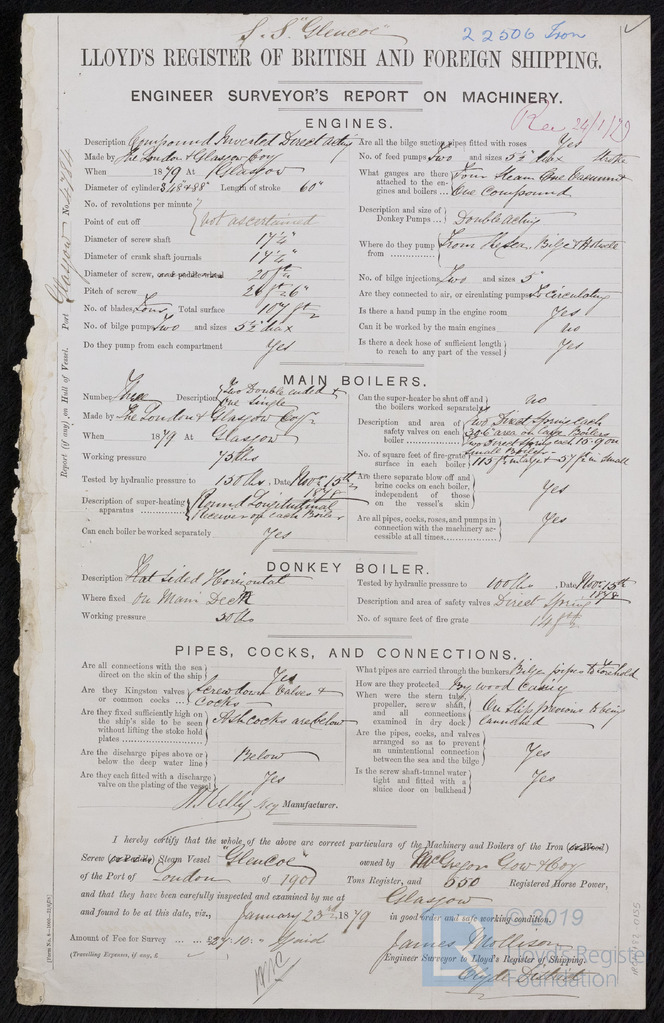 S.S. "Glencoe"
22506 Iron
LLOYD'S REGISTER OF BRITISH AND FOREIGN SHIPPING.
ENGINEER SURVEYOR'S REPORT ON MACHINERY.
Rec 24/1/79
Report (if any) on Hull of Vessel. Port Glasgow No.
ENGINES.
Description Compound Inverted Direct Acting
Made by The London & Glasgow Coy
When 1879 At Glasgow
Diameter of cylinders 48" & 88" Length of stroke 60"
No. of revolutions per minute
Point of cut off } not ascertained
Diameter of screw shaft 17¼"
Diameter of crank shaft journals 17¼"
Diameter of screw, and paddle wheel 20 ft
Pitch of screw 26"
No. of blades, Four Total surface 107 ft
No. of bilge pumps Two and sizes 5½" diax
Do they pump from each compartment Yes
Are all the bilge suction pipes fitted with roses Yes
No. of feed pumps Two and sizes 5½ diax stroke
What gauges are there attached to the engines and boilers ... Four Steam One Vacuum One Compound
Description and size of Donkey Pumps ... Double acting
Where do they pump from From Bilge &
No. of bilge injections Two and sizes 5"
Are they connected to air, or circulating pumps To Circulating
Is there a hand pump in the engine room Yes
Can it be worked by the main engines no
Is there a deck hose of sufficient length to reach to any part of the vessel Yes
MAIN BOILERS.
Number Three Description Two Double ended & One Single
Made by The London & Glasgow Coy
When 1879 At Glasgow
Working pressure 75 lbs
Tested by hydraulic pressure to 150 lbs, Date Nov 15th 1878
Description of super-heating apparatus Round Longitudinal Receiver on each Boiler
Can each boiler be worked separately Yes
Can the super-heater be shut off and the boilers worked separately no
Description and area of safety valves on each boiler Two Direct Spring each 30.6 area on Large Boilers Two Direct Spring each 15.9 on Small Boiler
No. of square feet of fire-grate surface in each boiler 115 ft in large & 57 ft in Small
Are there separate blow off and brine cocks on each boiler, independent of those on the vessel's skin Yes
Are all pipes, cocks, roses, and pumps in connection with the machinery accessible at all times Yes
DONKEY BOILER.
Description Flat Sided Horizontal
Where fixed On Main Deck
Working pressure 50 lbs
Tested by hydraulic pressure to 100 lbs. Date Nov 15th 1878
Description and area of safety valves Direct Spring
No. of square feet of fire grate 14 ft
PIPES, COCKS, AND CONNECTIONS.
Are all connections with the sea direct on the skin of the ship Yes
Are they Kingston valves or common cocks ... Screw down Valves & Cocks
Are they fixed sufficiently high on the ship's side to be seen without lifting the stoke hold plates Ash cocks are below
Are the discharge pipes above or below the deep water line Below
Are they each fitted with a discharge valve on the plating of the vessel Yes
What pipes are carried through the bunkers Bilge pipes to forehold
How are they protected By wood Casing
When were the stern tube, propeller, screw shaft, and all connections examined in dry dock On slip previous to being launched
Are the pipes, cocks, and valves arranged so as to prevent an unintentional connection between the sea and the bilge Yes
Is the screw shaft-tunnel water tight and fitted with a sluice door on bulkhead Yes
Manufacturer.
I hereby certify that the whole of the above are correct particulars of the Machinery and Boilers of the Iron
Screw Steam Vessel "Glencoe" owned by McGregor Gow & Coy
of the Port of London of 1901 Tons Register, and 550 Registered Horse Power,
and that they have been carefully inspected and examined by me at Glasgow
and found to be at this date, viz., January 23rd 1879 in good order and safe working condition.
Amount of Fee for Survey £27.10. Paid
(Travelling Expenses, if any, £
James Mollison
Engineer Surveyor to Lloyd's Register of Shipping.
Clyde District
© 2019
Lloyd's Register
Foundation